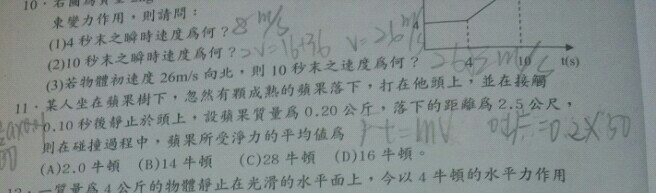 東變力作用，則請問：
(1)4秒末之瞬時速度為何？8 m/s
(2)10秒末之瞬時速度為何？2V=16+36 V=26 m/s
(3)若物體初速度26m/s向北，則10秒末之速度為何？26√2 m/s
4 10 t(s)
11．某人坐在蘋果樹下，忽然有顆成熟的蘋果落下，打在他頭上，並在接觸
0.10秒後靜止於頭上，設蘋果質量為0.20公斤，落下的距離為2.5公尺，
則在碰撞過程中，蘋果所受淨力的平均值為 Ft=mV
(A)2.0牛頓 (B)14牛頓 (C)28牛頓 (D)16牛頓。
一質量為4公斤的物體靜止在光滑的水平面上，今以4牛頓的水平力作用